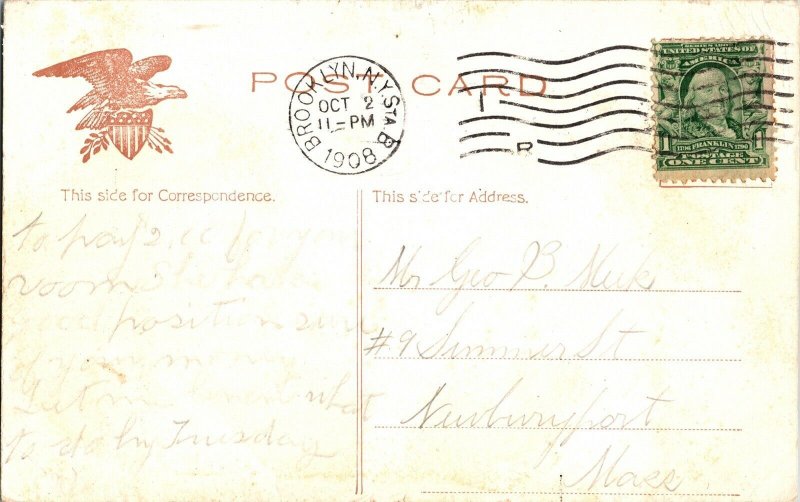 POST CARD
BROOKLYN, N.Y. STA. B
OCT 2
11-PM
1908
1
R
SERIES 1902
UNITED STATES OF
AMERICA
1706 FRANKLIN 1790
1 1
POSTAGE
ONE CENT
This side for Correspondence.
This side for Address.
to pay 2.00 for your
room She has a
good position sure
of your money
Let me know what
to do by Tuesday
Mr Geo B. Meek
#9 Summer St
Newburyport
Mass